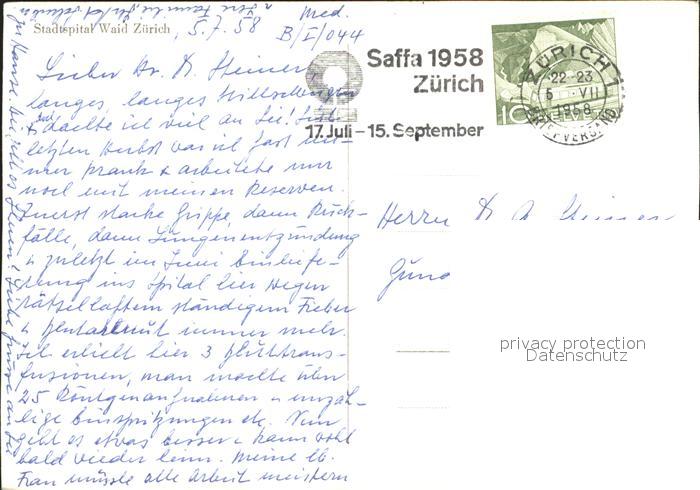 Stadtspital Waid Zürich, 5.7.58
Med.
B/I/044
Lieber Dr. A. Steiner,
langes, langes Stillschweigen
& dachte ich viel an Sie! Seit
letzten Herbst war ich fast im-
mer krank & arbeitete nur
noch mit meinen Reserven.
Zuerst starke Grippe, dann Rück-
fälle, dann Lungenentzündung
& zuletzt im Juni Einliefe-
rung ins Spital hier wegen
rätselhaftem ständigem Fieber
& Blutarmut immer mehr.
Ich erhielt hier 3 Bluttrans-
fusionen, man machte über
25 Röntgenaufnahmen & unzäh-
lige Einspritzungen etc. Nun
geht es etwas besser & kann wohl
bald wieder heim. Meine lb.
Frau musste alle Arbeit meistern
zu Hause.
Saffa 1958
Zürich
17. Juli – 15. September
ZÜRICH 1
22-23
5 VII
1958
BRIEFVERSAND
10 HELVETIA
Herrn Dr A Steiner
privacy protection
Datenschutz